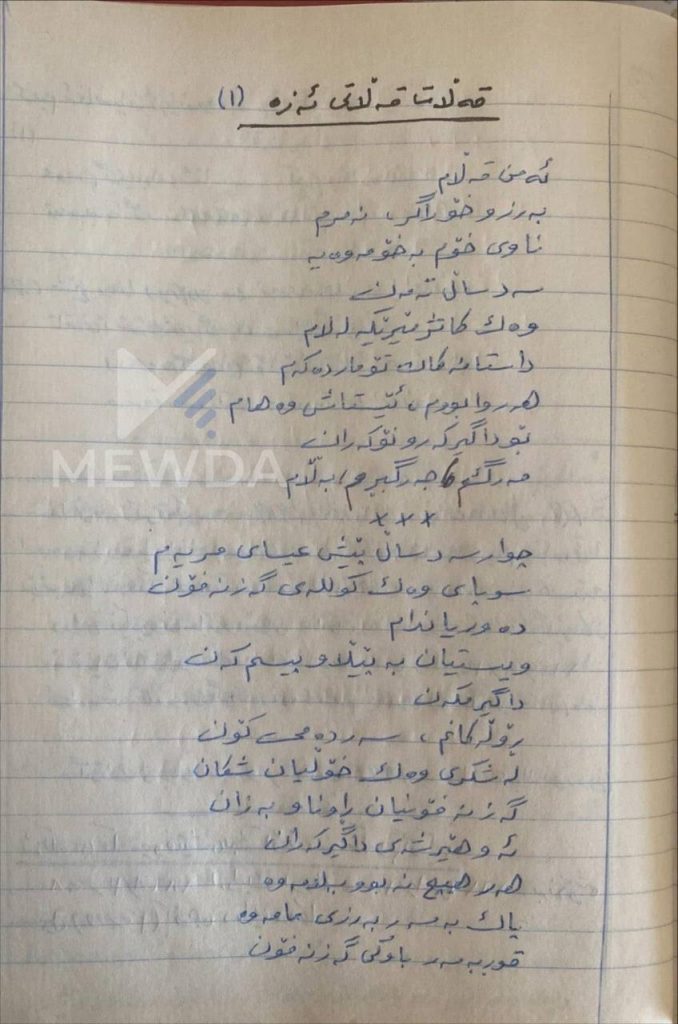 قەڵات قەڵاتی ئەزە (١)
ئەمن قەڵام
بەرزو خۆڕاگر، نەمرم
ناوی خۆم بەخۆمەوەیە
سەد ساڵ تەمەن
وەك كاتژمێرێكە لەلام
داستانەكان تۆمار دەكەم
هەروا بووم، ئێستاش وەهام
بۆ داگیركەر و نۆكەران
مەرگم، جەرگبڕم، بەڵام
×××
چوار سەد ساڵ پێش عیسای مریەم
سوپای وەك كوللەی گەزنەفۆن
دەوریاندام
ویستیان بە پێڵاو پیسم كەن
داگیرمكەن
ڕۆڵەكانم، سەردەمی كۆن
لەشكری وەك خۆڵیان شكان
گەزنەفۆنیان ڕاوناو بەزان
ئەو هێرشەی داگیركەران
هەر هیچ نەبوو بەلامەوە
پاك بەسەربەرزی مامەوە
قوڕبەسەر باوكی گەزنەفۆن
MEWDA